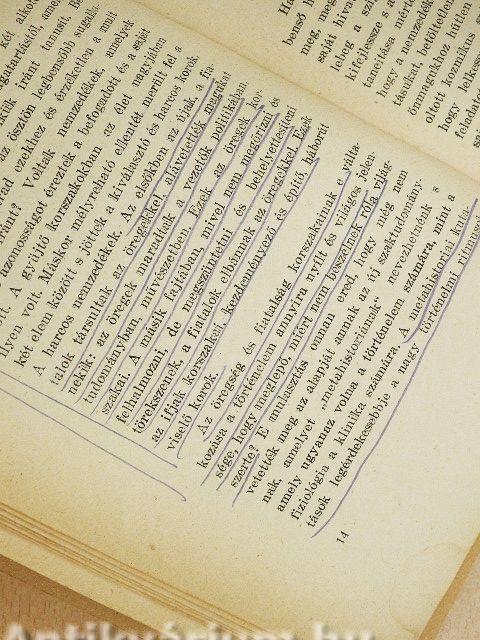 két alkotó
magatartáktól, amely
nekik iránt tanusít. Be
az ösztön legbensőbb sugalla-
marad ezekhez és érzéketlen a mult
iránt? Voltak nemzedékek, amelyek
azonosságot éreztek a befogadott és a saját
közt. A gyűjtő korszakokban az élet nagyjában
ilyen volt. Máskor mélyreható ellentét merült fel a
két elem között s jöttek a kiválasztó és harcos korok
A harcos nemzedékek. Az elsőkben az újak, a fia-
talok társultak az öregekkel, alávetették magukat
nekik: az öregek maradtak a vezetők politikában,
tudományban, művészetben. Ezek az öregek kor-
szakai. A másik fajtában, mivel nem megőrizni és
felhalmozni, de megszüntetni és behelyettesíteni
törekszenek, a fiatalok elbánnak az öregekkel. Ezek
az ifjak korszakai, kezdeményező és építő, háború
viselő korok.
Az öregség és fiatalság korszakainak e válta-
kozása a történelem annyira nyílt és világos jelen-
sége, hogy meglepő, miért nem beszélnek róla világ-
szerte? E mulasztás onnan ered, hogy még nem
vetették meg az alapját annak az új szaktudomány-
nak, amelyet „metahistoriának” nevezhetnünk s
amely ugyanaz volna a történelem számára, mint a
fiziológia a klinika számára. A metahistoriai kuta-
tások legérdekesebbje a nagy történelmi ritmusok
14
Ha
benső h
meg, meg
saját hiva
jeleg a szí
kifejlessza s a
tanítása mérték
hogy a nemzedék
tásukat, betöltetlen
önmagukhoz hűtlen
oltott kozmikus
hogy lelkes
feladato
Antikvárium.hu